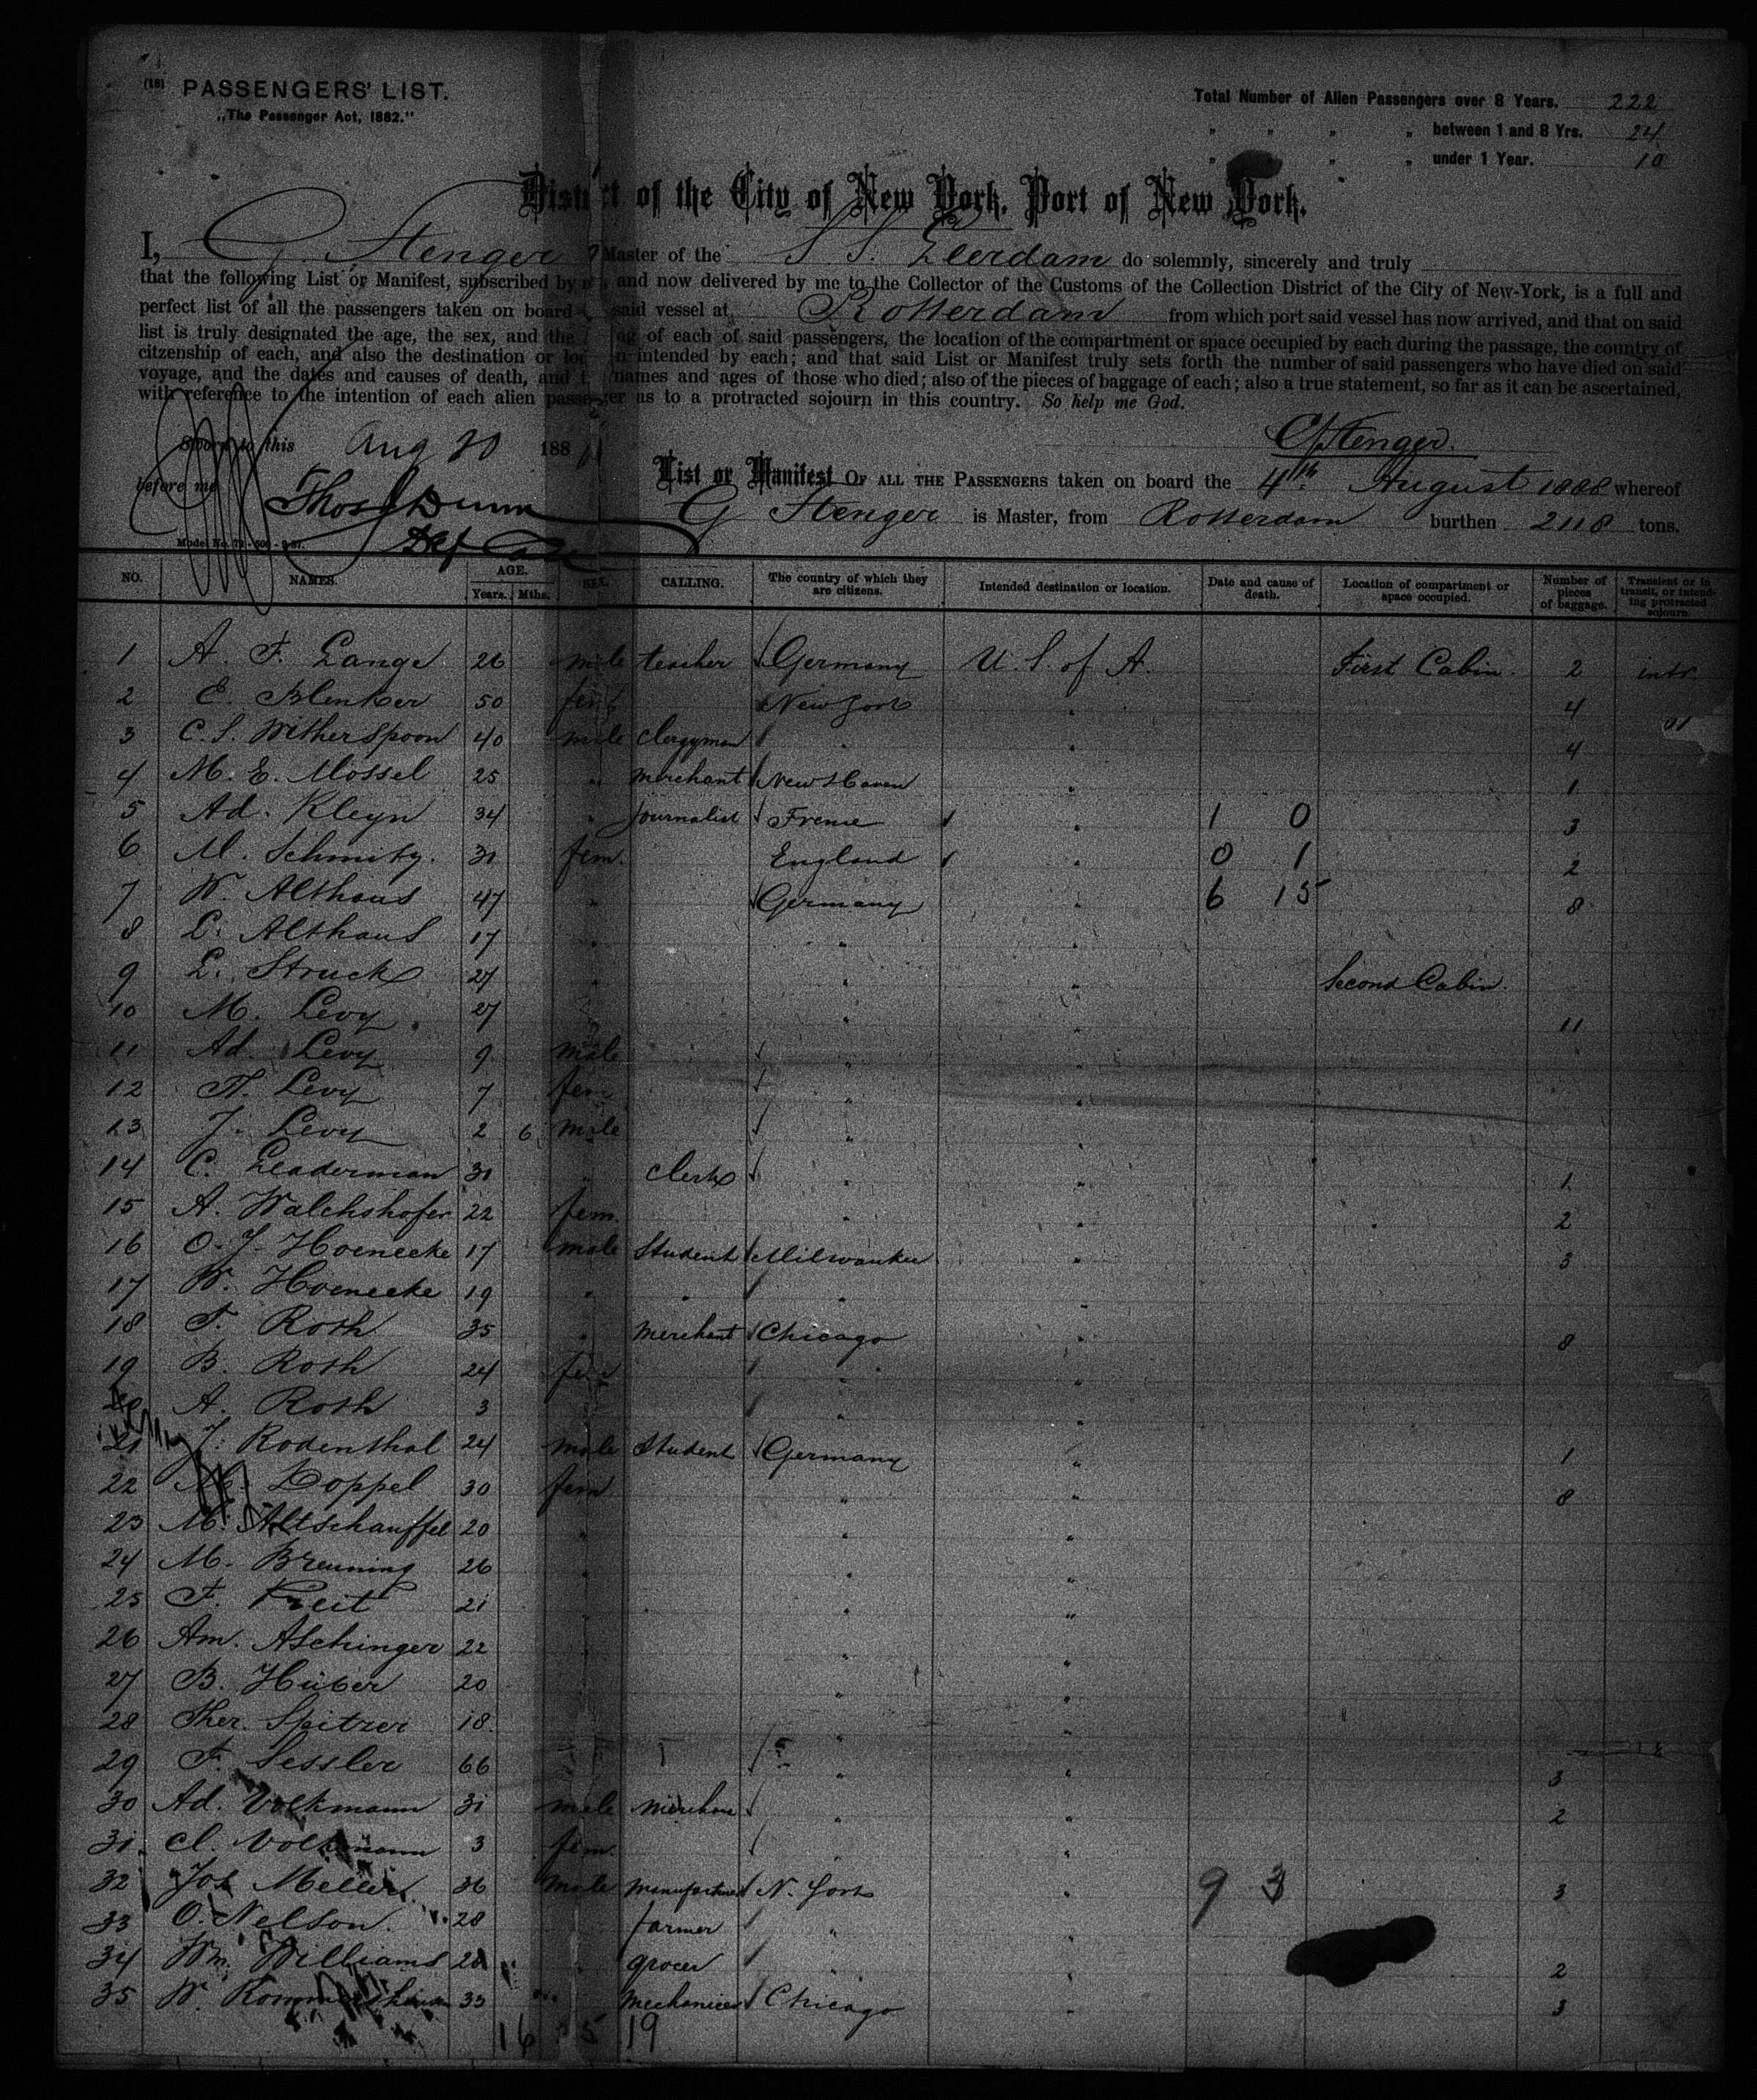 (18) PASSENGERS' LIST.
„The Passenger Act, 1882."
Total Number of Alien Passengers over 8 Years. 222
" " " „ between 1 and 8 Yrs. 24
" " " „ under 1 Year. 10
District of the City of New York, Port of New York.
I, G. Stenger Master of the S. S. Leerdam do solemnly, sincerely and truly
that the following List or Manifest, subscribed by and now delivered by me to the Collector of the Customs of the Collection District of the City of New-York, is a full and
perfect list of all the passengers taken on board said vessel at Rotterdam from which port said vessel has now arrived, and that on said
list is truly designated the age, the sex, and the of each of said passengers, the location of the compartment or space occupied by each during the passage, the country of
citzenship of each, and also the destination or intended by each; and that said List or Manifest truly sets forth the number of said passengers who have died on said
voyage, and the dates and causes of death, and names and ages of those who died; also of the pieces of baggage of each; also a true statement, so far as it can be ascertained,
with reference to the intention of each alien passenger as to a protracted sojourn in this country. So help me God.
Sworn to this Aug 20 188
G Stenger.
before me Thos J Dunn
List or Manifest OF ALL THE PASSENGERS taken on board the 4th August 1888 whereof
G Stenger is Master, from Rotterdam burthen 2118 tons.
NO. NAMES. AGE. Years. Mths. SEX. CALLING. The country of which they are citizens. Intended destination or location. Date and cause of death. Location of compartment or space occupied. Number of pieces of baggage. Transient or in transit, or intending protracted sojourn.
1 A. F. Lange 26 male teacher Germany U. S. of A. First Cabin. 2
2 E. Blenker 50 fem New York " 4
3 C. S. Witherspoon 40 male Clergyman " " 4
4 M. E. Mossel 25 " merchant New Haven " 1
5 Ad. Kleyn 34 " journalist " 1 0 3
6 M. Schmitz. 31 fem. England " 0 1 2
7 W. Althaus 47 " Germany " 6 15 8
8 L. Althaus 17 " " "
9 L. Struck 27 " " " Second Cabin.
10 M. Levy 27 " " 11
11 Ad. Levy 9 male " "
12 Levy 7 fem " "
13 J. Levy 2 6 male " "
14 C. Leaderman 31 " Clerk " " 1
15 A. Walchshofer 22 fem. " " 2
16 O. J. Hoenecke 17 male Student Milwaukee " 3
17 W. Hoenecke 19 " " " "
18 F. Roth 35 " Merchant Chicago " 8
19 B. Roth 24 fem " "
20 A. Roth 3 " "
21 J. Rodenthal 24 male Student Germany " 1
22 Doppel 30 fem " " 8
23 M. Altschauffel 20 " " "
24 M. Breuning 26 " " "
25 F. 21 " " "
26 Am. Aschinger 22 " "
27 B. Huber 20 " "
28 Ther. Spitzer 18. " "
29 F. Sessler 66 " " 3
30 Ad. Volkmann 31 male " " 2
31 Cl. Volkmann 3 fem. "
32 Jos. 36 male N. York " 9 3 3
33 O. Nelson. 28 farmer " "
34 Wm. Williams 28 " grocer " " 2
35 W. 33 Chicago " 3
16 5 19